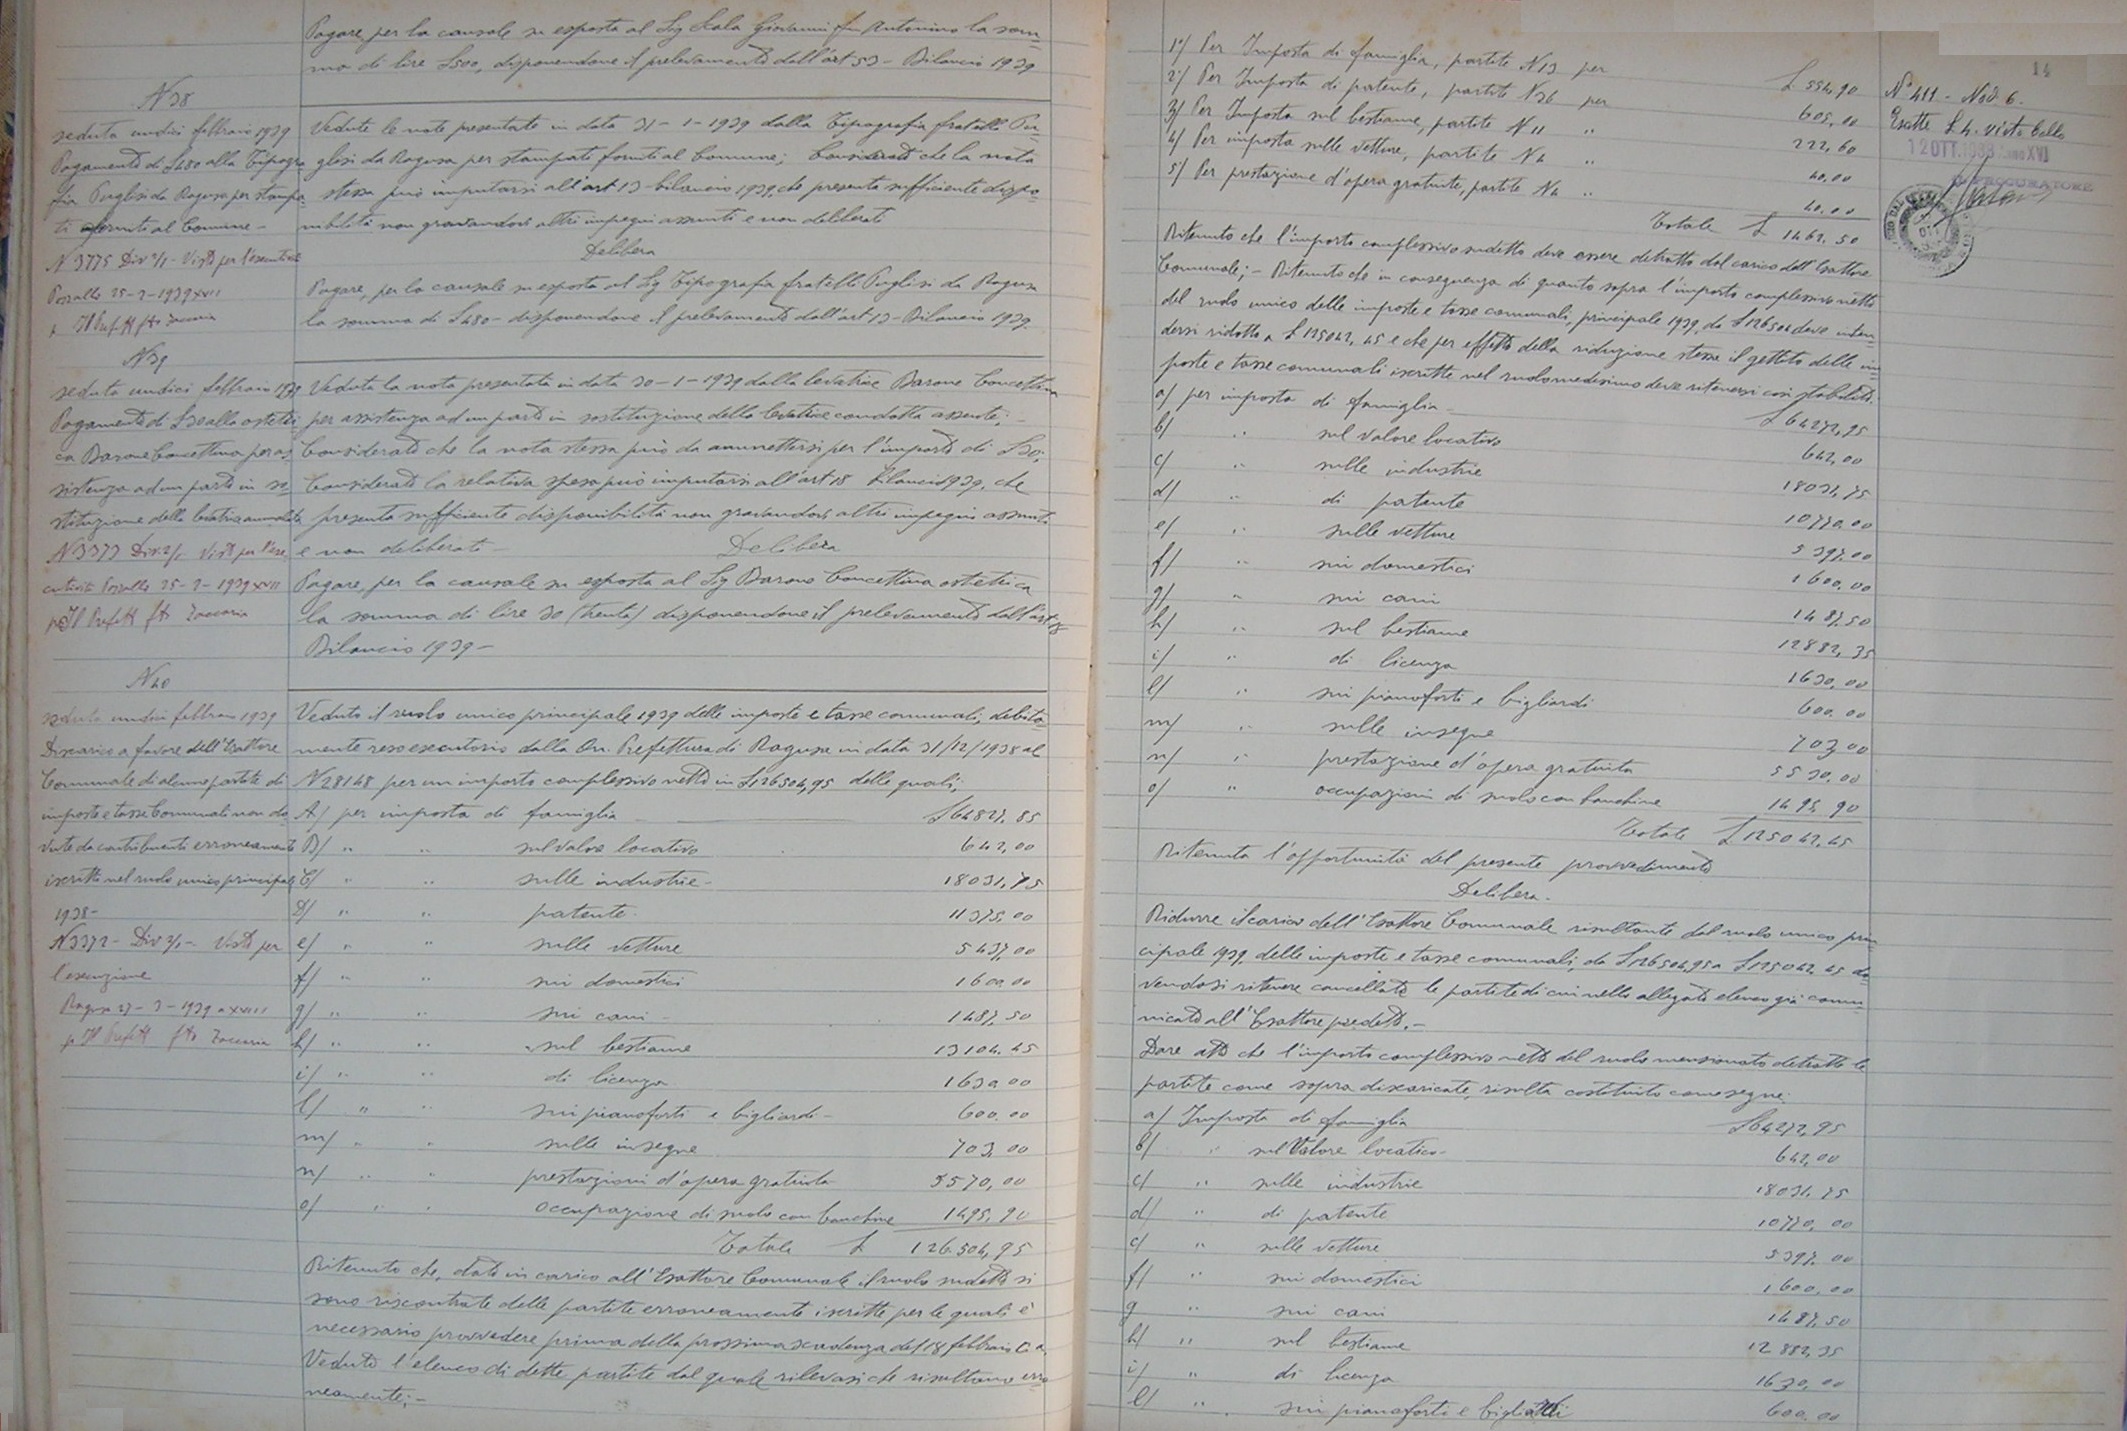 Pagare, per la causale su esposta al Sig Scala Giovanni fu Antonino la som=
ma di lire L500, disponendone il prelevamento dall'art 53 - Bilancio 1939
N 38
seduta undici febbraio 1939
Pagamento di L480 alla Tipogra
fia Puglisi da Ragusa per stampa=
ti forniti al Comune -
N 3775 Div 2/1 - Visto per l'esecutività
25-2-1939 XVII
p Il Prefetto fto Zaccaria
Vedute le note presentate in data 31-1-1939 dalla Tipografia fratelli Pu=
glisi da Ragusa per stampati forniti al Comune; Considerato che la nota
stessa può imputarsi all'art 13 bilancio 1939, che presenta sufficiente dispo=
nibilità non gravandovi altri impegni assunti e non deliberati
Delibera
Pagare, per la causale su esposta al Sig Tipografia fratelli Puglisi da Ragusa
la somma di L480 - disponendone il prelevamento dall'art 13 - Bilancio 1939.
N 39
seduta undici febbraio 1939
Pagamento di L30 alla ostetri
ca Barone Concettina per as
sistenza ad un parto in so=
stituzione della levatrice
N 3373 Div. 2/1 Visto per l'ese
cutività 25-2-1939 XVII
p Il Prefetto fto Zaccaria
Veduta la nota presentata in data 30-1-1939 dalla levatrice Barone Concettina
per assistenza ad un parto in sostituzione della levatrice condotta assente; -
Considerato che la nota stessa può da ammettersi per l'importo di L30;
Considerato la relativa spesa può imputarsi all'art 18 bilancio 1939, che
presenta sufficiente disponibilità non gravandovi altri impegni assunti
e non deliberati - Delibera
Pagare, per la causale su esposta al Sig Barone Concettina ostetrica
la somma di lire 30 (trenta) disponendone il prelevamento dall'art 18
Bilancio 1939 -
N 40
seduta undici febbraio 1939
Discarico a favore dell'Esattore
Comunale di alcune partite di
imposte e tasse Comunali non do
vute da contribuenti erroneamente
iscritti nel ruolo unico principale
1938 -
N 3372 - Div 2/1 - Visto per
l'esecuzione
Ragusa 27-3-1939 a XVII
p Il Prefetto fto Zaccaria
Veduto il ruolo unico principale 1939 delle imposte e tasse comunali, debita=
mente reso esecutorio dalla On. Prefettura di Ragusa in data 31/12/1938 al
N 28148 per un importo complessivo netto in L126504,95 delle quali;
A/ per imposta di famiglia - L 64827.85
B/ " " sul valore locativo 642,00
C/ " " sulle industrie - 18031,75
D/ " " patente. 11375,00
e/ " " sulle vetture 5437,00
f/ " " sui domestici 1600.00
g/ " " sui cani - 1487,50
h/ " " sul bestiame 13104.45
i/ " " di licenza 1630.00
l/ " " sui pianoforti e bigliardi - 600.00
m/ " " sulle insegne 703,00
n/ " " prestazioni d'opera gratuita 5570,00
o/ " " occupazione di suolo con banchine 1495,90
Totale L 126.504,95
Ritenuto che, dato in carico all'Esattore Comunale il ruolo sudetto si
sono riscontrate delle partite erroneamente iscritte per le quali è
necessario provvedere prima della prossima scadenza del 18 febbraio c.a.
Veduto l'elenco di dette partite dal quale rilevasi che risultano erro
neamente; -
14
1°/ Per Imposta di famiglia, partite N 13 per L 554,90
2/ Per Imposta di patente, partite N 36 per 605,00
3/ Per Imposta sul bestiame, partite N 11 " 222,60
4/ Per imposta sulle vetture, partite N 4 " 40,00
5/ Per prestazione d'opera gratuite, partite N 4 " 40.00
Totale L 1462,50
N° 411 - Mod 6.
Esatte L 4. visto bollo
12 OTT. 1938 Anno XVI
PROCURATORE
Ritenuto che l'importo complessivo sudetto deve essere detratto dal carico dell'Esattore
Comunale; - Ritenuto che in conseguenza di quanto sopra l'importo complessivo netto
del ruolo unico delle imposte e tasse comunali, principale 1939, da L 126504 deve inten=
dersi ridotto a L 125042,45 e che per effetto della riduzione stessa il gettito delle im
poste e tasse comunali iscritte nel ruolo medesimo deve ritenersi così stabilito.
a/ per imposta di famiglia - L 64272,95
b/ " sul valore locativo 642,00
c/ " sulle industrie 18031,75
d/ " di patente 10770,00
e/ " sulle vetture 5397,00
f/ " sui domestici 1600,00
g/ " sui cani 1487,50
h/ " sul bestiame 12882,35
i/ " di licenza 1630,00
l/ " sui pianoforti e bigliardi 600.00
m/ " sulle insegne 703,00
n/ " prestazione d'opera gratuita 5530,00
o/ " occupazioni di suolo con banchine 1495,90
Totale L 125042,45
Ritenuta l'opportunità del presente provvedimento
Delibera -
Ridurre il carico dell'Esattore Comunale risultante dal ruolo unico prin=
cipale 1939, delle imposte e tasse comunali, da L126504,95 a L125042,45 do
vendosi ritenere cancellate le partite di cui nello allegato elenco già comu=
nicato all'Esattore predetto. -
Dare atto che l'importo complessivo netto del ruolo menzionato detratte le
partite come sopra discaricate, risulta costituito come segue:
a/ Imposta di famiglia L 64272,95
b/ " sul Valore locativo - 642,00
c/ " sulle industrie 18031,75
d/ " di patente 10770,00
e/ " sulle vetture 5397,00
f/ " sui domestici 1600,00
g " sui cani 1487,50
h/ " sul bestiame 12882,35
i/ " di licenza 1630,00
l/ " sui pianoforti e bigliardi 600.00